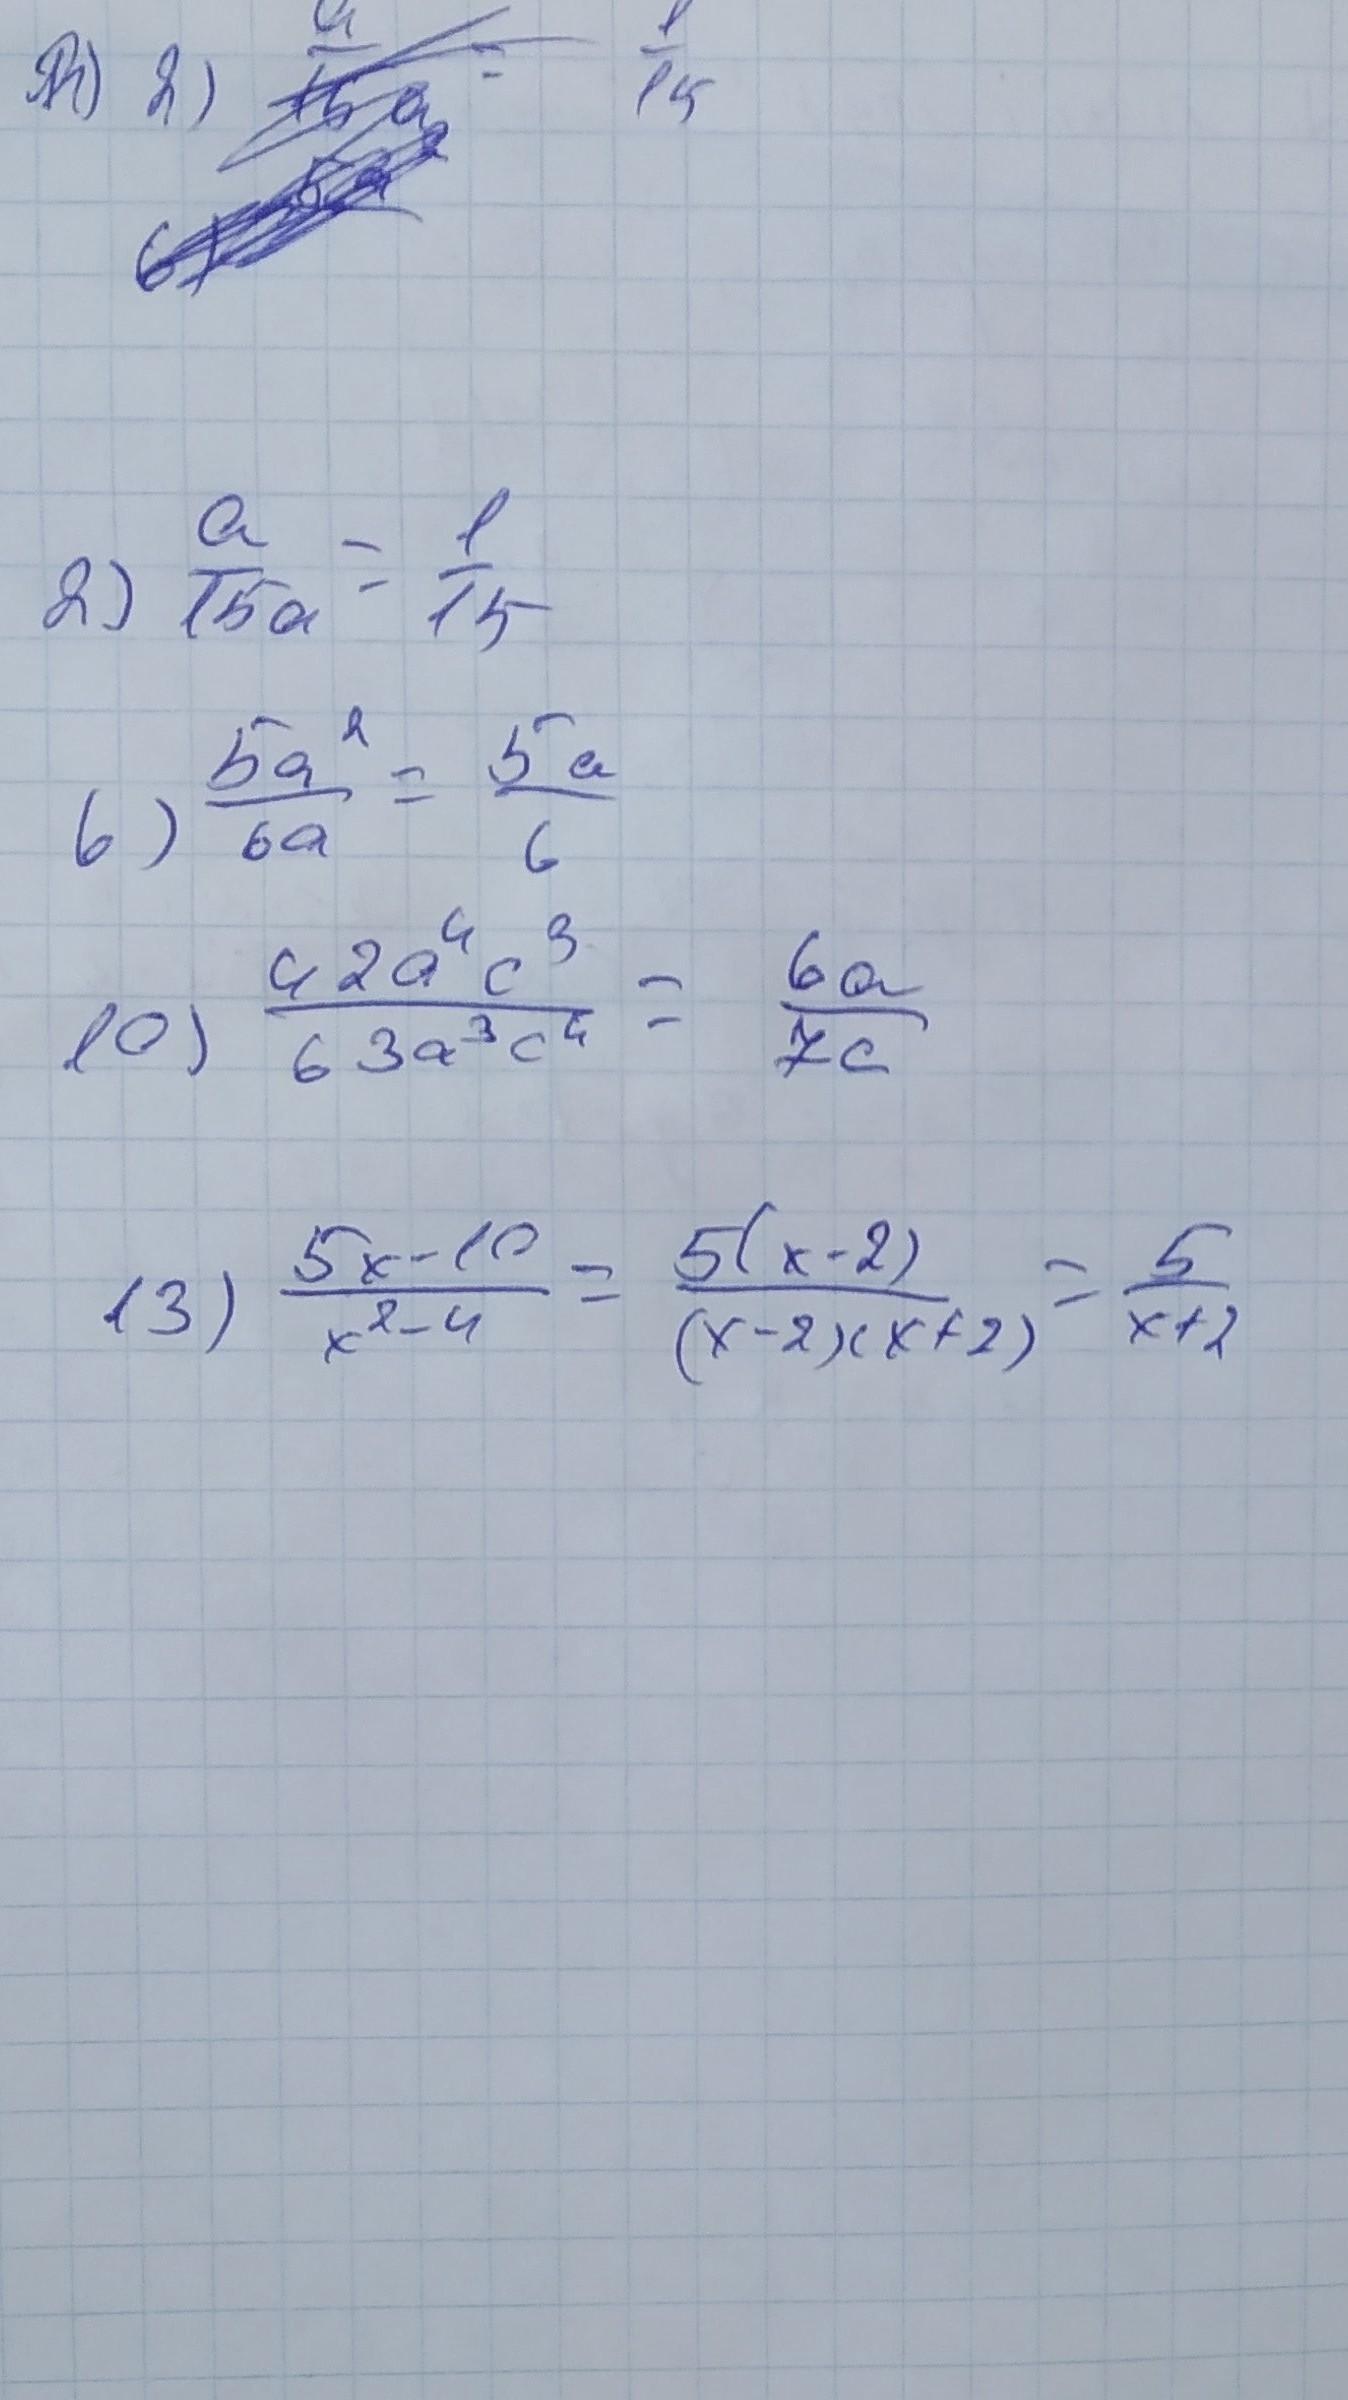 2) a/15a = 1/15
2) a/15a = 1/15
6) 5a²/6a = 5a/6
10) 42a⁴c³/63a³c⁴ = 6a/7c
13) 5x-10/x²-4 = 5(x-2)/(x-2)(x+2) = 5/x+2